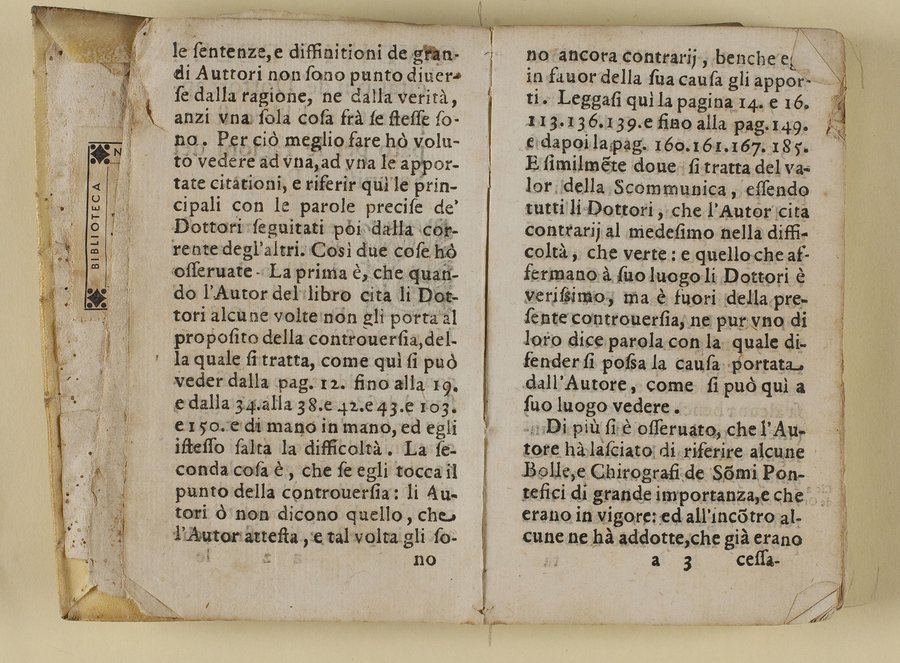 le ſentenze, e diffinitioni de gran-
di Auttori non ſono punto diuer-
ſe dalla ragione, ne dalla verità,
anzi vna ſola coſa frà ſe ſteſſe ſo-
no. Per ciò meglio fare hò volu-
to vedere ad vna, ad vna le appor-
tate citationi, e riferir quì le prin-
cipali con le parole preciſe de'
Dottori ſeguitati poi dalla cor-
rente degl'altri. Così due coſe hò
oſſeruate. La prima è, che quan-
do l'Autor del libro cita li Dot-
tori alcune volte non gli porta al
propoſito della controuerſia, del-
la quale ſi tratta, come quì ſi può
veder dalla pag. 12. fino alla 19.
e dalla 34. alla 38. e 42. e 43. e 103.
e 150. e di mano in mano, ed egli
iſteſſo ſalta la difficoltà. La ſe-
conda coſa è, che ſe egli tocca il
punto della controuerſia: li Au-
tori ò non dicono quello, che
l'Autor atteſta, e tal volta gli ſo-
no
BIBLIOTECA
N
no ancora contrarij, benche
in fauor della ſua cauſa gli appor-
ti. Leggaſi quì la pagina 14. e 16.
113. 136. 139. e fino alla pag. 149.
e dapoi la pag. 160. 161. 167. 185.
E ſimilmẽte doue ſi tratta del va-
lor della Scommunica, eſſendo
tutti li Dottori, che l'Autor cita
contrarij al medeſimo nella diffi-
coltà, che verte: e quello che af-
fermano à ſuo luogo li Dottori è
veriſsimo, ma è fuori della pre-
ſente controuerſia, ne pur vno di
loro dice parola con la quale di-
fender ſi poſsa la cauſa portata
dall'Autore, come ſi può quì a
ſuo luogo vedere.
Di più ſi è oſſeruato, che l'Au-
tore hà laſciato di riferire alcune
Bolle, e Chirografi de Sõmi Pon-
tefici di grande importanza, e che
erano in vigore: ed all'incõtro al-
cune ne hà addotte, che già erano
a 3 ceſſa-